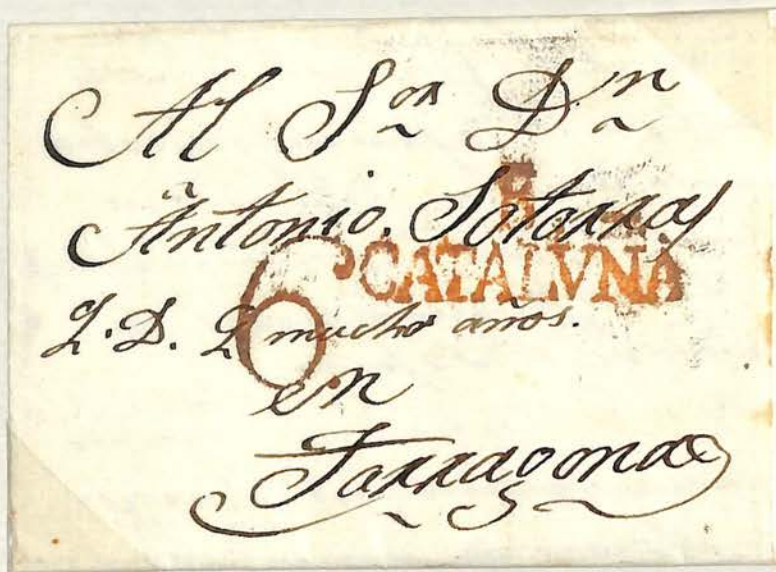 Al Sor Dn
Antonio. Sotorra
6 CATALVNA
Q. D. G. mucho años.
en
Tarragona